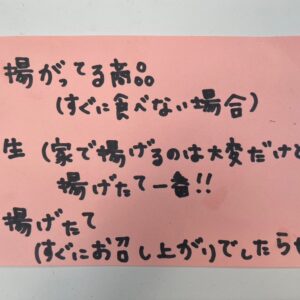 揚がってる商品
(すぐに食べない場合)
生 (家で揚げるのは大変だけど
揚げたて一番!!
揚げたて
(すぐにお召し上がりでしたらせ